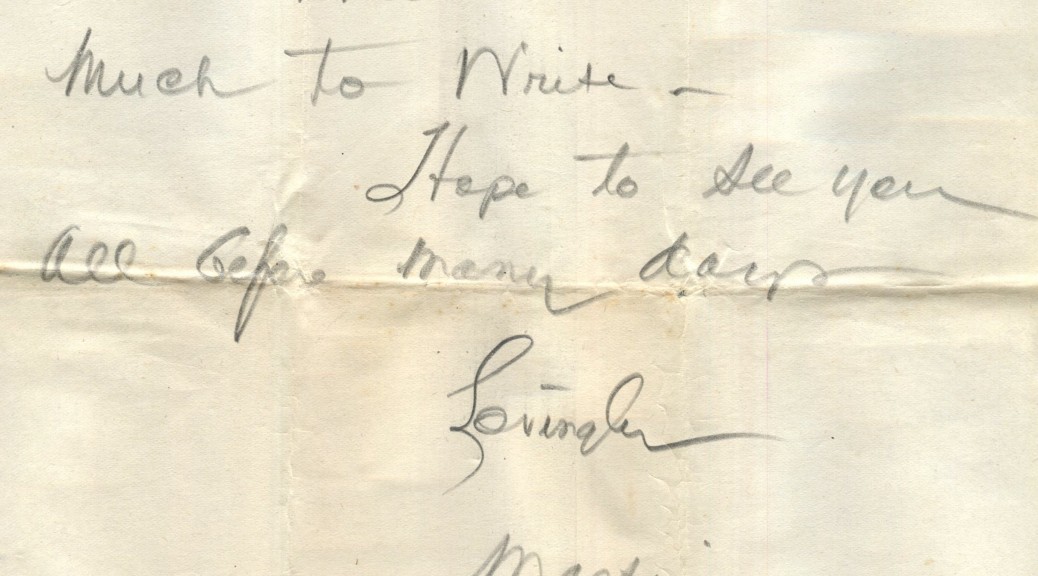 Much to Write -
Hope to see you
All before many days
Lovingly